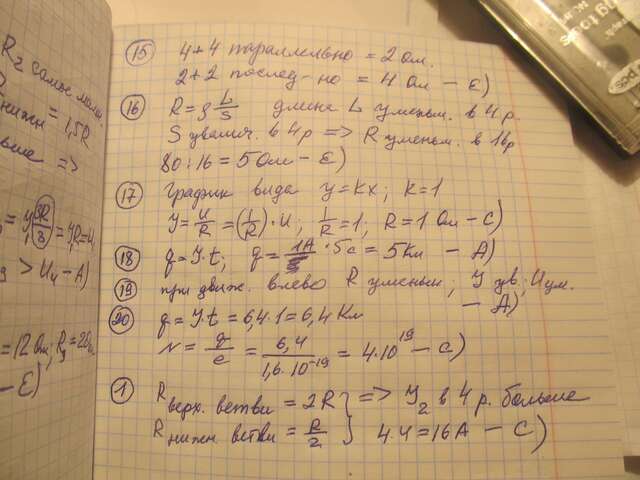 R₂ самое
нижн = 1,5R
=>
> U₄ - A)
= 12 Ом; R
- E)
15 4+4 параллельно = 2 Ом.
2+2 послед-но = 4 Ом - E)
16 R = ρ L/S длина L уменьш. в 4 р.
S увелич. в 4 р => R уменьш. в 16 р
80 : 16 = 5 Ом - E)
17 График вида y = kx; k = 1
J = U/R = (1/R)·U; 1/R = 1; R = 1 Ом - C)
18 q = J·t; q = 1A · 5c = 5 Кл - A)
19 при движ. влево R уменьш; J ув; U ум.
- A)
20 q = J·t = 6,4·1 = 6,4 Кл
N = q/e = 6,4/1,6·10⁻¹⁹ = 4·10¹⁹ - C)
1 R верх. ветви = 2R } => J₂ в 4 р. больше
R нижн ветви = R/2 } 4·4 = 16 A - C)